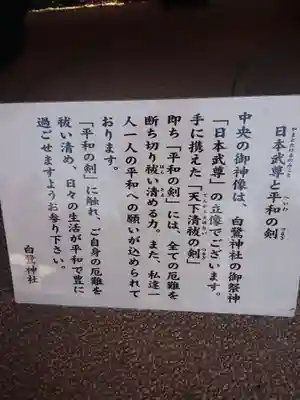 日本武尊と平和の剣
中央の御神像は、白鷺神社の御祭神
「日本武尊」の立像でございます。
手に携えた「天下清祓の剣」
即ち「平和の剣」には、全ての厄難を
断ち切り祓い清める力。また、私達一
人一人の平和への願いが込められて
おります。
「平和の剣」に触れ、ご自身の厄難を
祓い清め、日々の生活が平和で豊に
過ごせますようお参り下さい。
白鷺神社